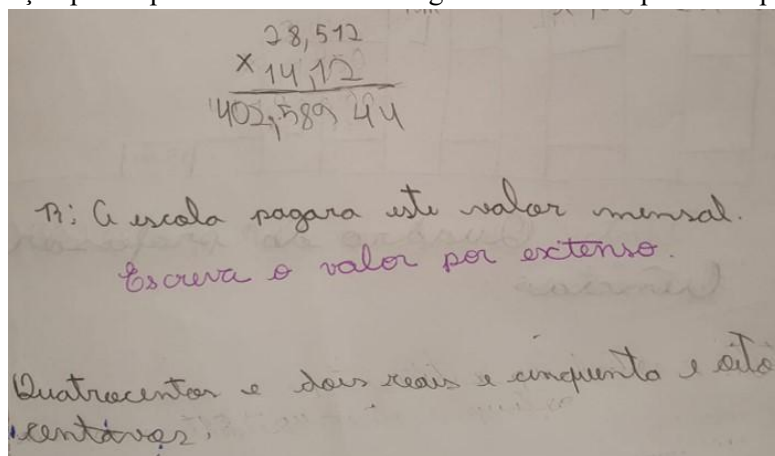 28,512
x 14,12
402,589 44
R: A escola pagara este valor mensal.
Escreva o valor por extenso.
Quatrocentos e dois reais e cinquenta e oito
centávos.